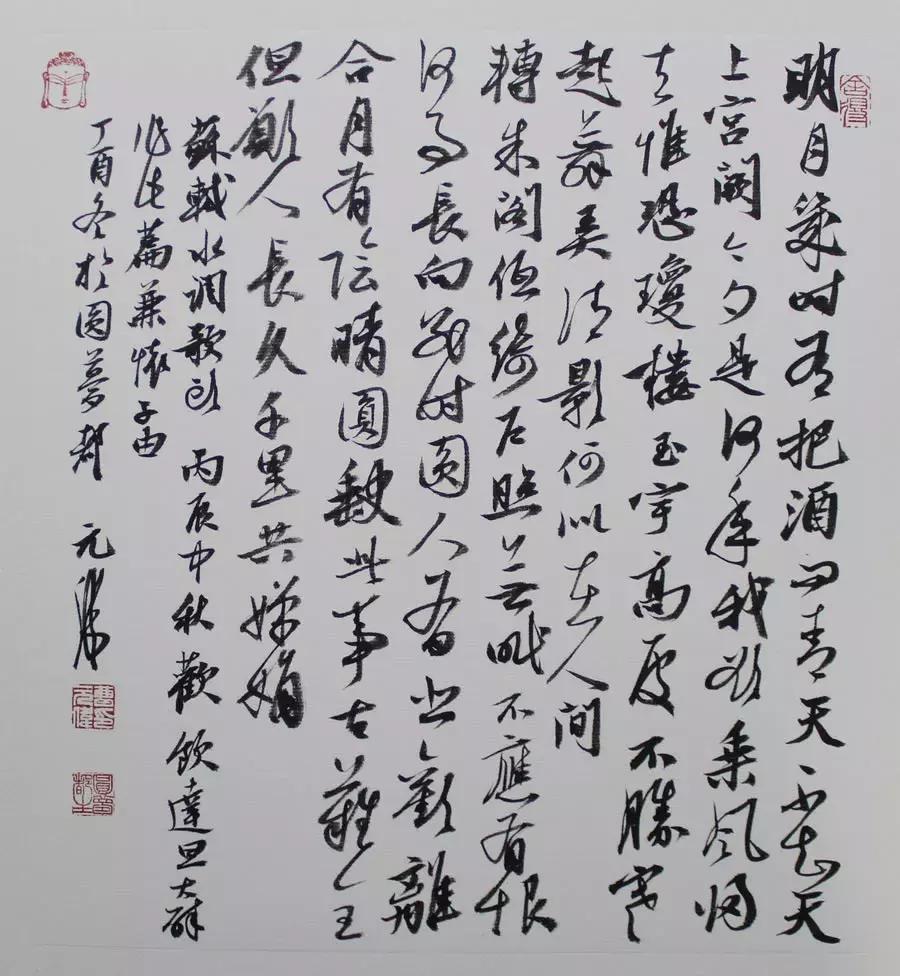 舍得
明月幾时有把酒问青天不知天
上宫闕今夕是何年我欲乘风归
去惟恐瓊樓玉宇高處不勝寒
起舞弄清影何似在人间
轉朱阁低綺户照无眠不應有恨
何事長向别时圆人有悲歡離
合月有陰晴圓缺此事古難全
但願人長久千里共嬋娟
蘇軾水调歌头 丙辰中秋歡飲達旦大醉
作此篇兼懷子由
丁酉冬於圆夢 元